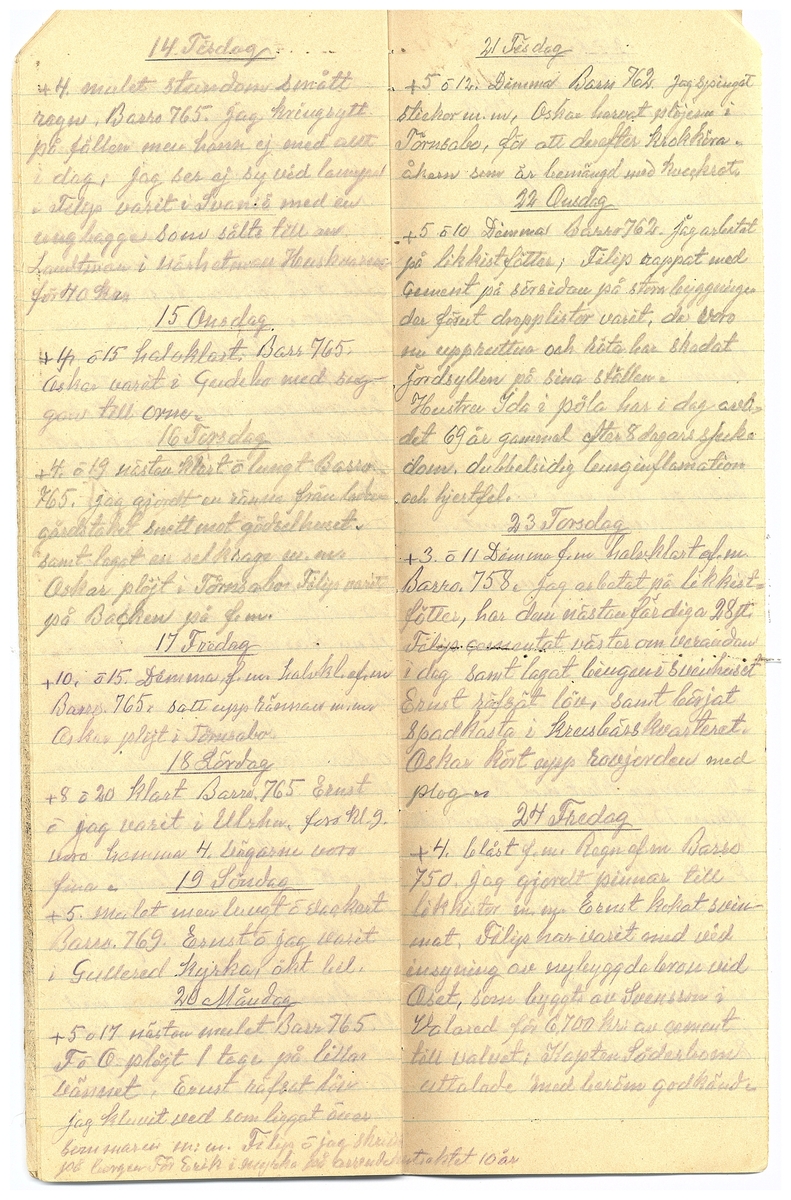 14 Tisdag
+4 mulet stundom smått
regn, Barro 765. jag kringsytt
på fållen men hann ej med allt
i dag, jag ser ej sy vid lampa
Filip varit i Svansö med en
ungbagge som sålts till en
Landtman i närheten
för 40 kr
15 Onsdag
+4 ō 15 halvklart, Barr 765.
Oskar varit i Gudebo med sug-
gan till orne.
16 Torsdag
+4. ō 19 nästan klart ō lungt Barro
765. jag gjordt en ränna från
gårdstaket snett mot gödselhuset.
samt lagat en m.m.
Oskar plöjt i Törnsabo Filip varit
på Backen på f.m.
17 Fredag
+10. ō 15. Dimma f.m. halvkl. ef.m
Barro. 765. satt upp rännan m.m
Oskar plöjt i Törnsabo.
18 Lördag
+8 ō 20 klart Barro. 765 Ernst
ō jag varit i Ulrha. foro kl. 9.
voro hemma 4. vägarne voro
fina.
19 Söndag
+5. mulet men lungt ō
Barro. 769. Ernst ō jag varit
i Gullered Kyrka, åkt bil.
20 Måndag
+5 o 17 nästan mulet Barr 765.
F ō O plöjt 1 tege på lilla
vännet, Ernst räfsat löv
jag kluvit ved som liggat över
sommaren m.m. Filip ō jag skrivit
på borgen för Erik i på arrendekontraktet 10 år
21 Tisdag
+5 ō 12. Dimma Barr 762. jag
stickor m.m, Oskar harvat plöjern i
Törnsabo, för att derefter krokköra
åkern som är bemängd med kveckrot.
22 Onsdag
+5 ō 10 Dimma Barro 762. jag arbetat
på likkistfötter; Filip rappat med
Cement på sörsidan på storbyggningen
der förut dropplister varit, de voro
nu uppruttna och röta har skadat
jordsyllen på sina ställen.
Hustru Ida i påla har i dag avli-
det 69 år gammal efter 8 dagars sjuk-
dom. dubbelsidig lunginflamation
och hjertfel.
23 Torsdag
+3. ō 11 Dimma f.m halvklart ef.m.
Barro. 758. jag arbetat på likkist-
fötter, har dem nästan färdiga 28 st.
Filip cementat väster om verandan
i dag samt lagat svinhuset
Ernst räfsat löv, samt börjat
spadkasta i krusbärskvarteret.
Oskar kört upp rovjorden med
plog
24 Fredag
+4. blåst f.m. Regn ef.m Barro
750. jag gjordt pinnar till
likkistor m.m. Ernst kokat svin-
mat, Filip har varit med vid
insyning av nybyggda bron vid
Öset, som byggts av Svensson i
Valared för 6,700 kr. av cement
till valvet; Kapten Söderbom
uttalade med beröm godkänd.